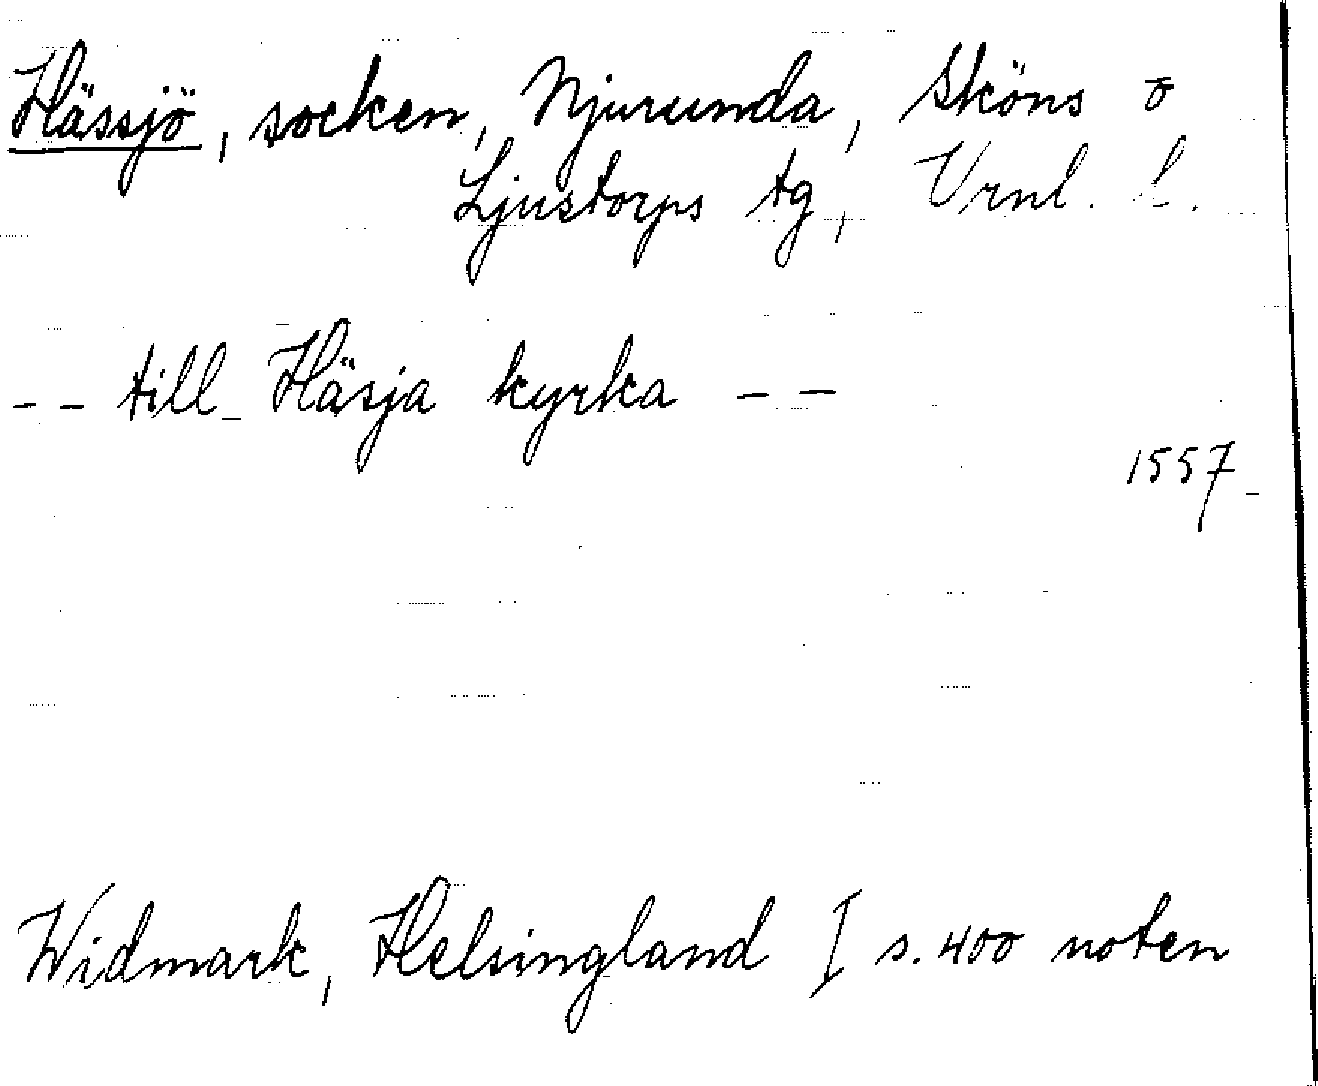 Hässjö, socken, Njurunda, Sköns o
Ljustorps tg, Vrnl. l.
-- till Häsja kyrka --
1557
Widmark, Helsingland I s. 400 noten